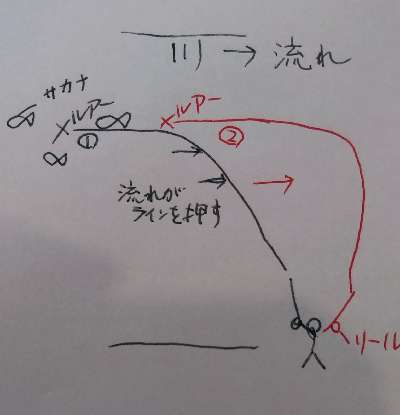 川 → 流れ
サカナ
×ルアー ×ルアー
① ②
流れが
ラインを押す
リール